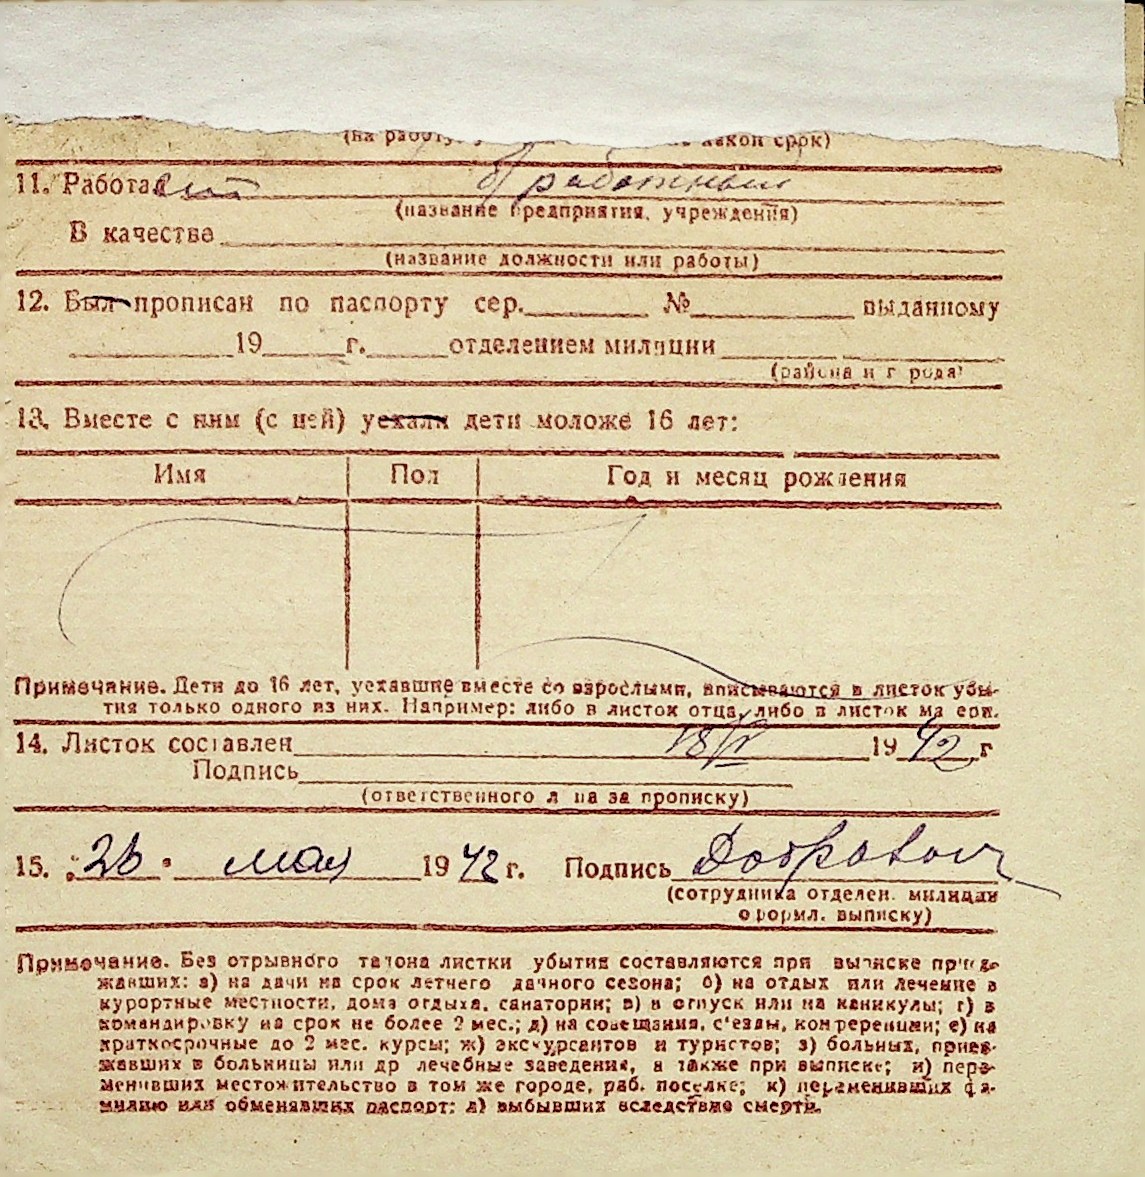 (на работу какой срок)
11. Работа
(название предприятия, учреждения)
В качестве
(название должности или работы)
12. Был прописан по паспорту сер. № выданному
19 г. отделением милиции
(района и города)
13. Вместе с ним (с ней) уехали дети моложе 16 лет:
Имя Пол Год и месяц рождения
Примечание. Дети до 16 лет, уехавшие вместе со взрослыми, вписываются в листок убы-
тия только одного из них. Например: либо в листок отца, либо в листок матери.
14. Листок составлен 18/V 1942 г
Подпись
(ответственного лица за прописку)
15. "26" мая 1942 г. Подпись
(сотрудника отделен. милиции
оформл. выписку)
Примечание. Без отрывного талона листки убытия составляются при выписке приез-
жавших: а) на дачи на срок летнего дачного сезона; б) на отдых или лечение в
курортные местности, дома отдыха, санатории; в) в отпуск или на каникулы; г) в
командировку на срок не более 2 мес.; д) на совещания, с'езды, конференции; е) на
краткосрочные до 2 мес. курсы; ж) экскурсантов и туристов; з) больных, приез-
жавших в больницы или др лечебные заведения, а также при выписке; и) пере-
менивших местожительство в том же городе, раб. поселке; к) переменивших фа-
милию или обменявших паспорт; л) выбывших вследствие смерти.